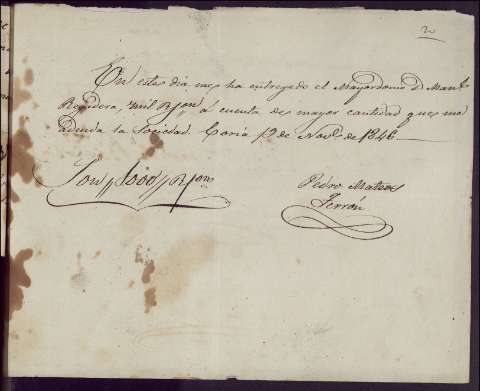 2
En este dia me ha entregado el Mayordomo D. Manl.
Regidera, mil Rs.on, á cuenta de mayor cantidad que me
adeuda la Sociedad. Coria 12 de Novbe. de 1846.
Son,, 1000,, Rs.on
Pedro Mateos
Terrón